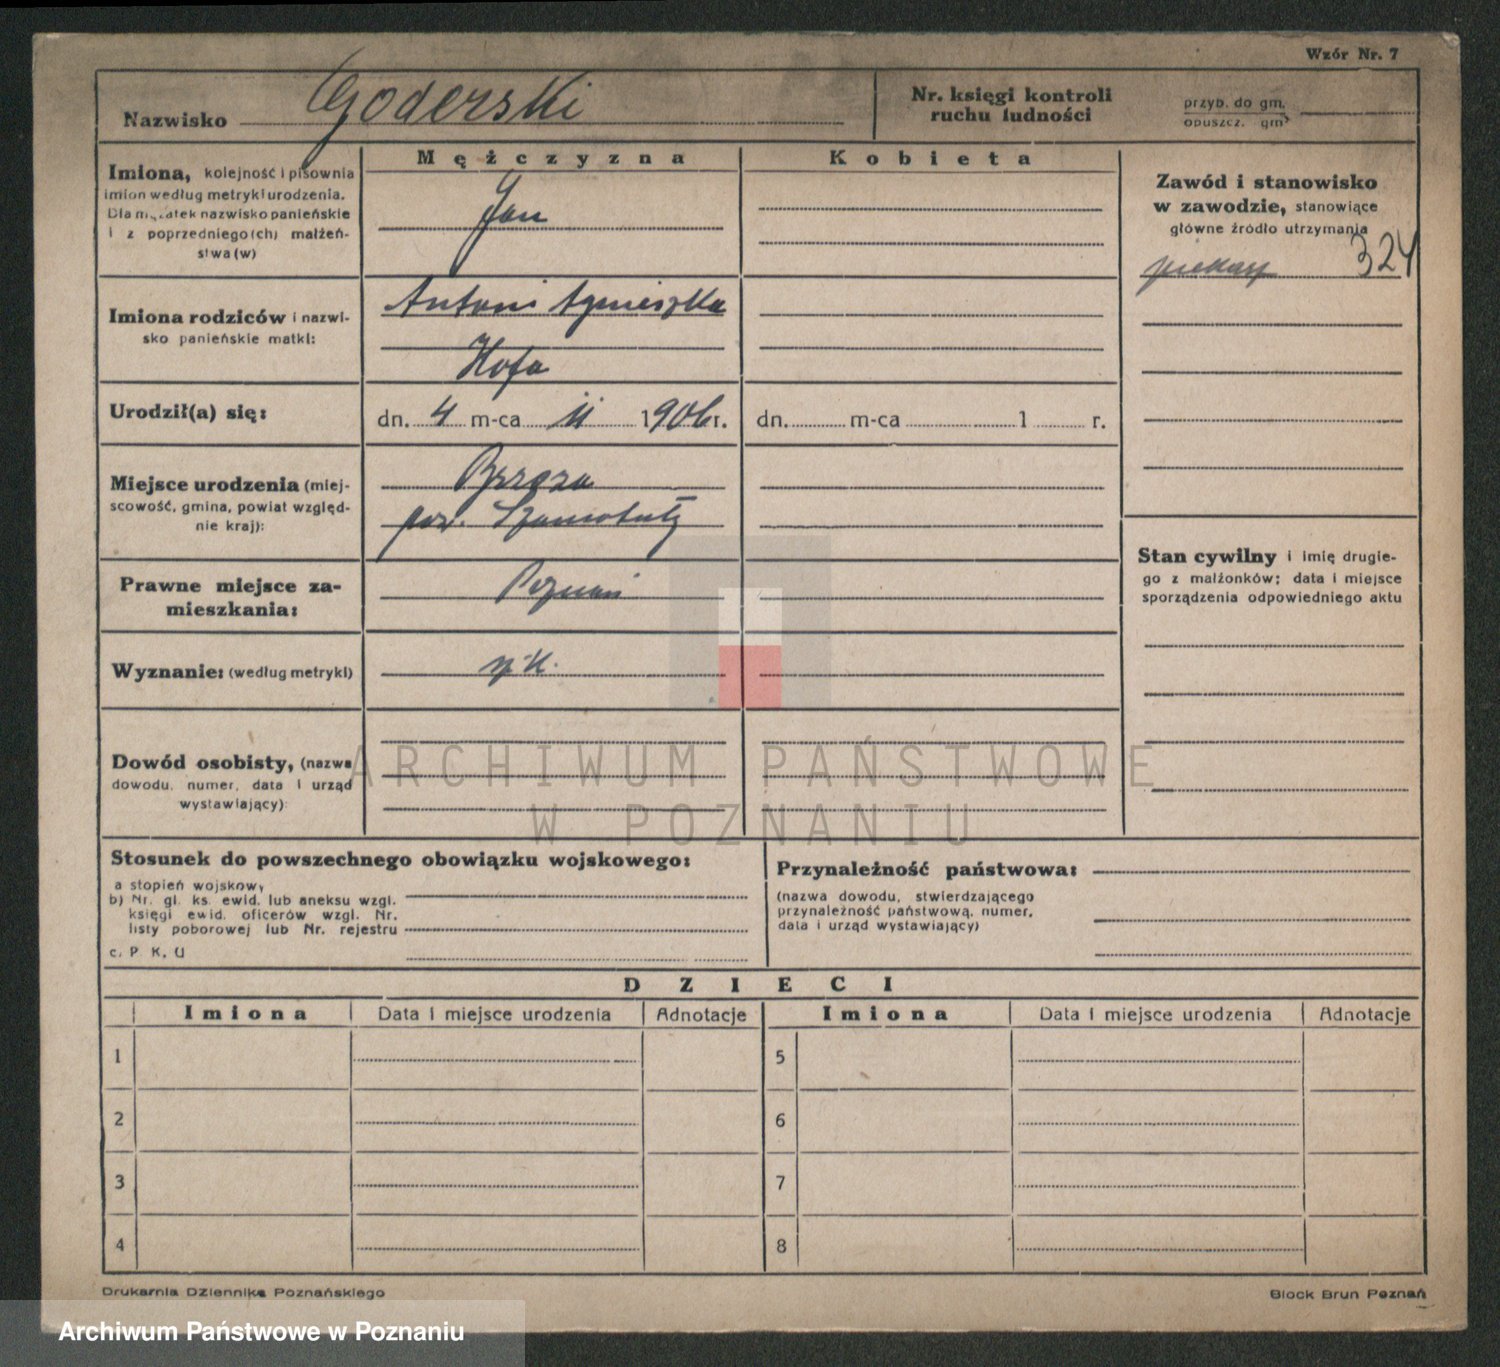 Wzór Nr. 7
Nazwisko Goderski
Nr. księgi kontroli ruchu ludności
przyb. do gm.
opuszcz. gm.
Mężczyzna
Kobieta
Imiona, kolejność i pisownia
imion według metryki urodzenia.
Dla mężatek nazwisko panieńskie
i z poprzedniego(ch) małżeń-
stwa(w)
Jan
Zawód i stanowisko
w zawodzie, stanowiące
główne źródło utrzymania
piekarz 324
Imiona rodziców i nazwi-
sko panieńskie matki:
Antoni Agnieszka
Hofa
Urodził(a) się:
dn. 4 m-ca II 1906 r.
dn. m-ca 1 r.
Miejsce urodzenia (miej-
scowość, gmina, powiat względ-
nie kraj):
pow. Szamotuły
Stan cywilny i imię drugie-
go z małżonków; data i miejsce
sporządzenia odpowiedniego aktu
Prawne miejsce za-
mieszkania:
Poznań
Wyznanie: (według metryki)
Dowód osobisty, (nazwa
dowodu, numer, data i urząd
wystawiający):
ARCHIWUM PAŃSTWOWE
W POZNANIU
Stosunek do powszechnego obowiązku wojskowego:
a stopień wojskowy
b) Nr. gl. ks. ewid. lub aneksu wzgl.
księgi ewid. oficerów wzgl. Nr.
listy poborowej lub Nr. rejestru
c. P. K. U
Przynależność państwowa:
(nazwa dowodu, stwierdzającego
przynależność państwową, numer,
data i urząd wystawiający)
DZIECI
Imiona Data i miejsce urodzenia Adnotacje Imiona Data i miejsce urodzenia Adnotacje
1 5
2 6
3 7
4 8
Drukarnia Dziennika Poznańskiego
Block Brun Poznań
Archiwum Państwowe w Poznaniu